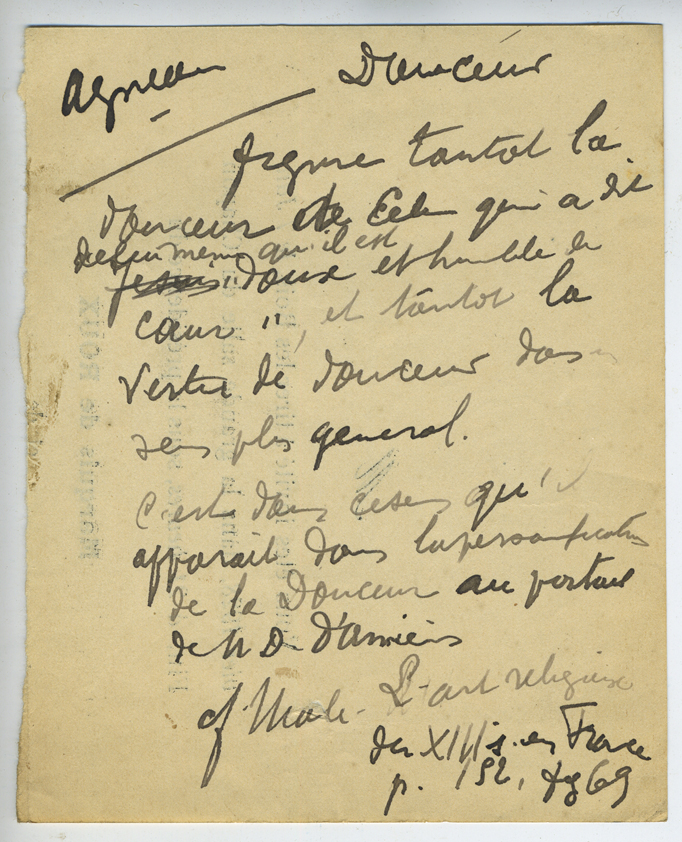 Agneau Douceur
figure tantot la
douceur de Celui qui a dit
de lui meme qu'il est
je suis "doux et humble de
cœur", et tantot la
vertu de douceur dans
sens plus general.
C'est dans ce sens qu'il
apparait dans la personnification
de la Douceur au portail
de N D d'Amiens
cf Male - L'art religieux
du XIII s. en France
p. 152, fig 69
Marquis de ROUX